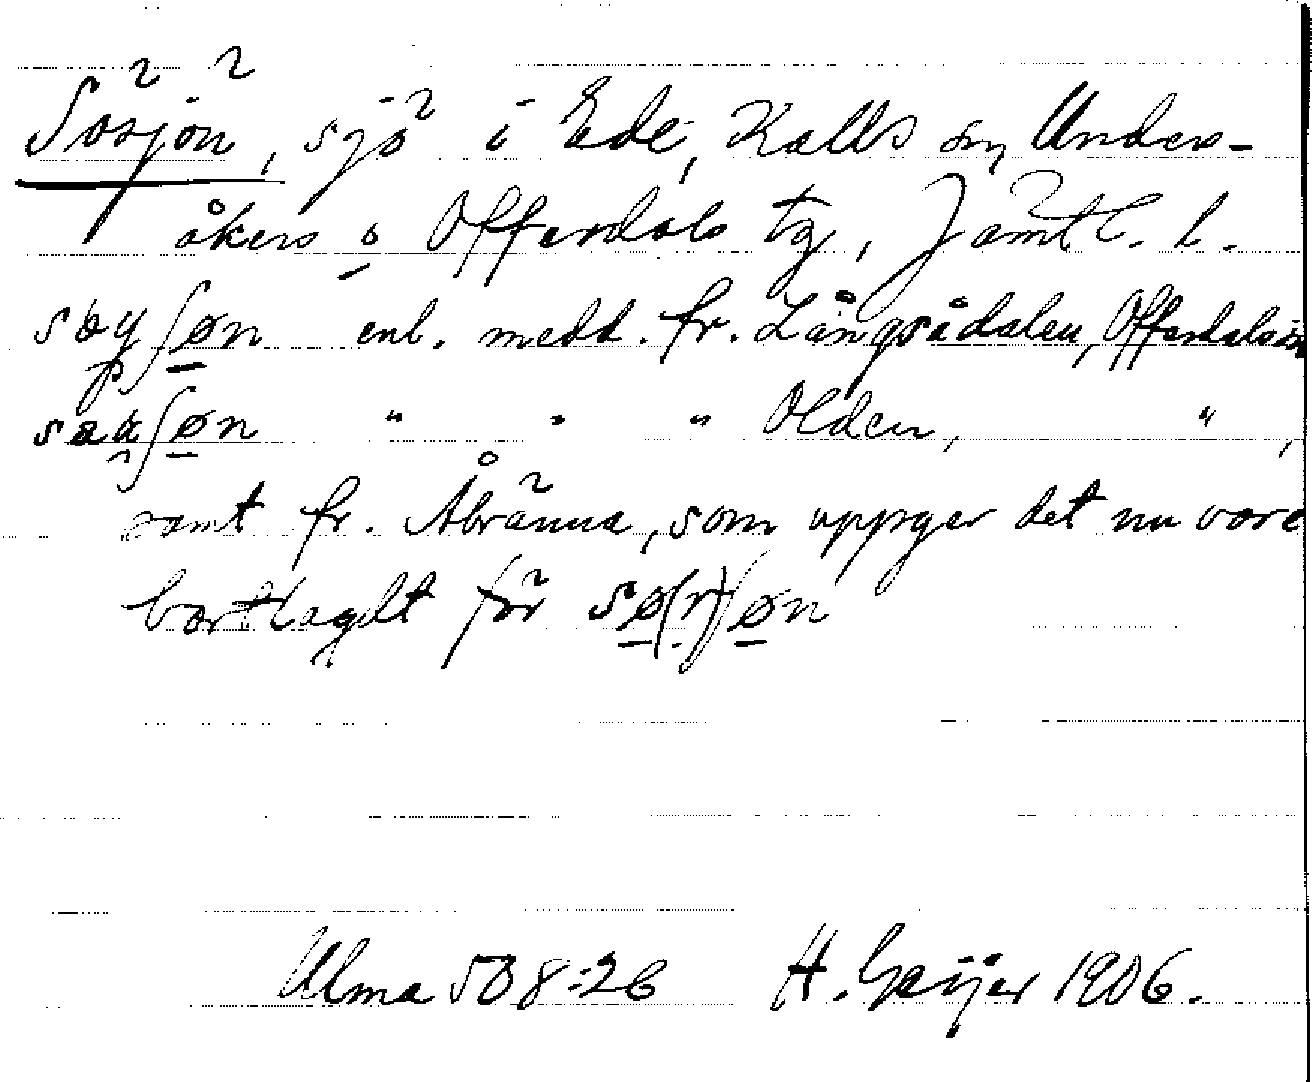 Sösjön, sjö i Ede, Kalls sn, Unders-
åkers o Offerdals tg, Jämtl. l.
søyʃøn enl. medd. fr. Långsådalen, Offerdals sn
sææʃøn " " " Olden, " ,
samt fr. Åbränna, som uppger det nu vore
bortlagdt för sø(r)ʃøn
Ulma 508:26 H. Geijer 1906.